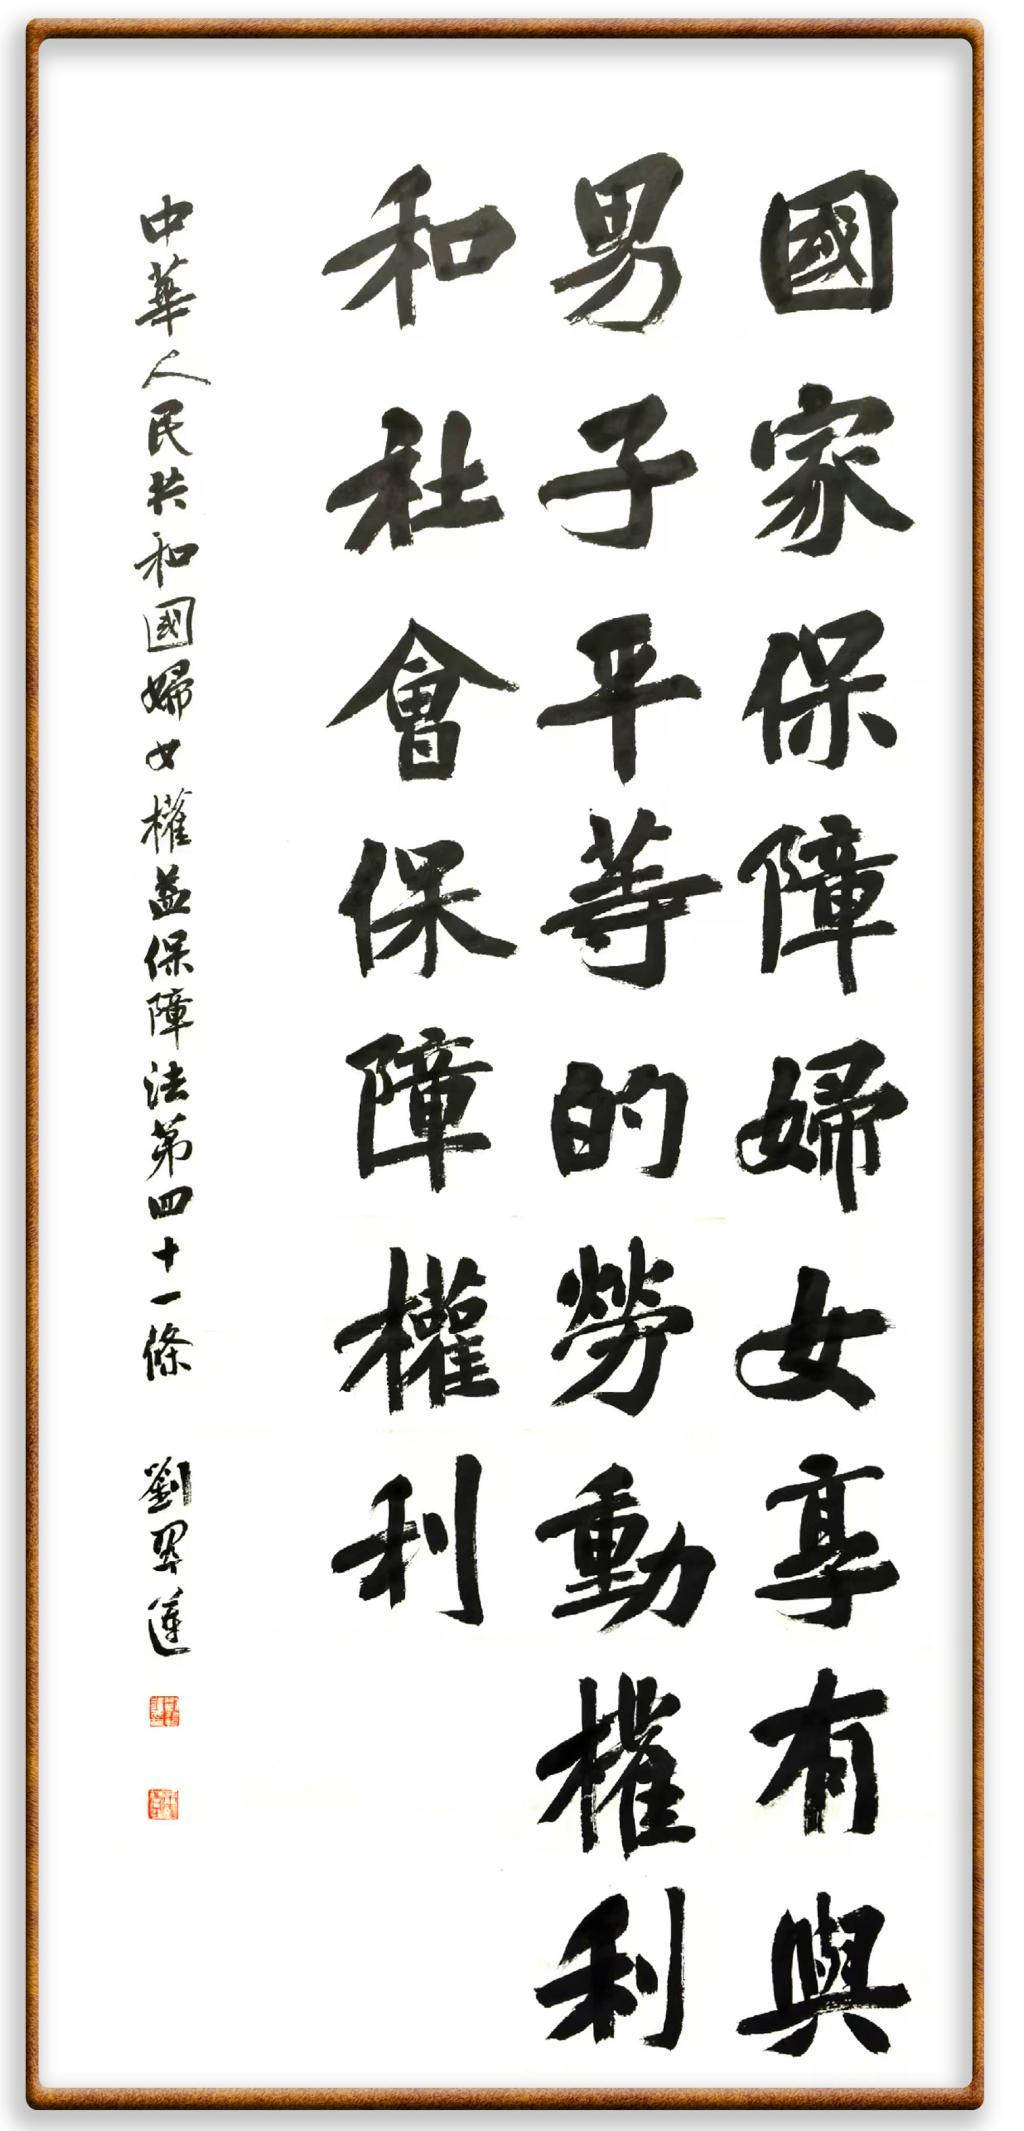 國家保障婦女享有與
男子平等的勞動權利
和社會保障權利
中華人民共和國婦女權益保障法第四十一條 劉翠蓮